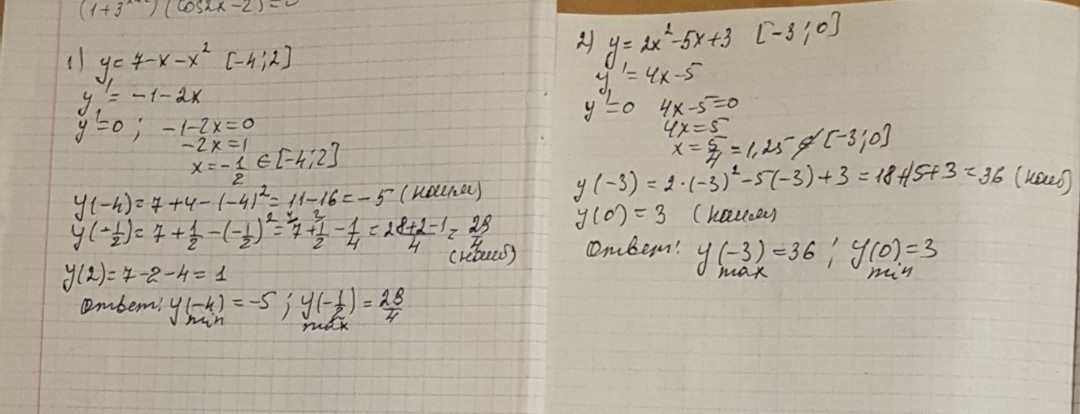 (1+3ˣ⁺²) (cos2x-2)=0
1) y=7-x-x² [-4;2]
y'=-1-2x
y'=0; -1-2x=0
-2x=1
x=-1/2 ∈ [-4;2]
y(-4)=7+4-(-4)²=11-16=-5 (наим)
y(-1/2)=7+1/2-(-1/2)²=7+1/2-1/4=28+2-1/4=29/4 (наиб)
y(2)=7-2-4=1
Ответ: y(-4)=-5; y(-1/2)=29/4
min max
2) y=2x²-5x+3 [-3;0]
y'=4x-5
y'=0 4x-5=0
4x=5
x=5/4=1,25 ∉ [-3;0]
y(-3)=2·(-3)²-5(-3)+3=18+15+3=36 (наиб)
y(0)=3 (наим)
Ответ: y(-3)=36; y(0)=3
max min